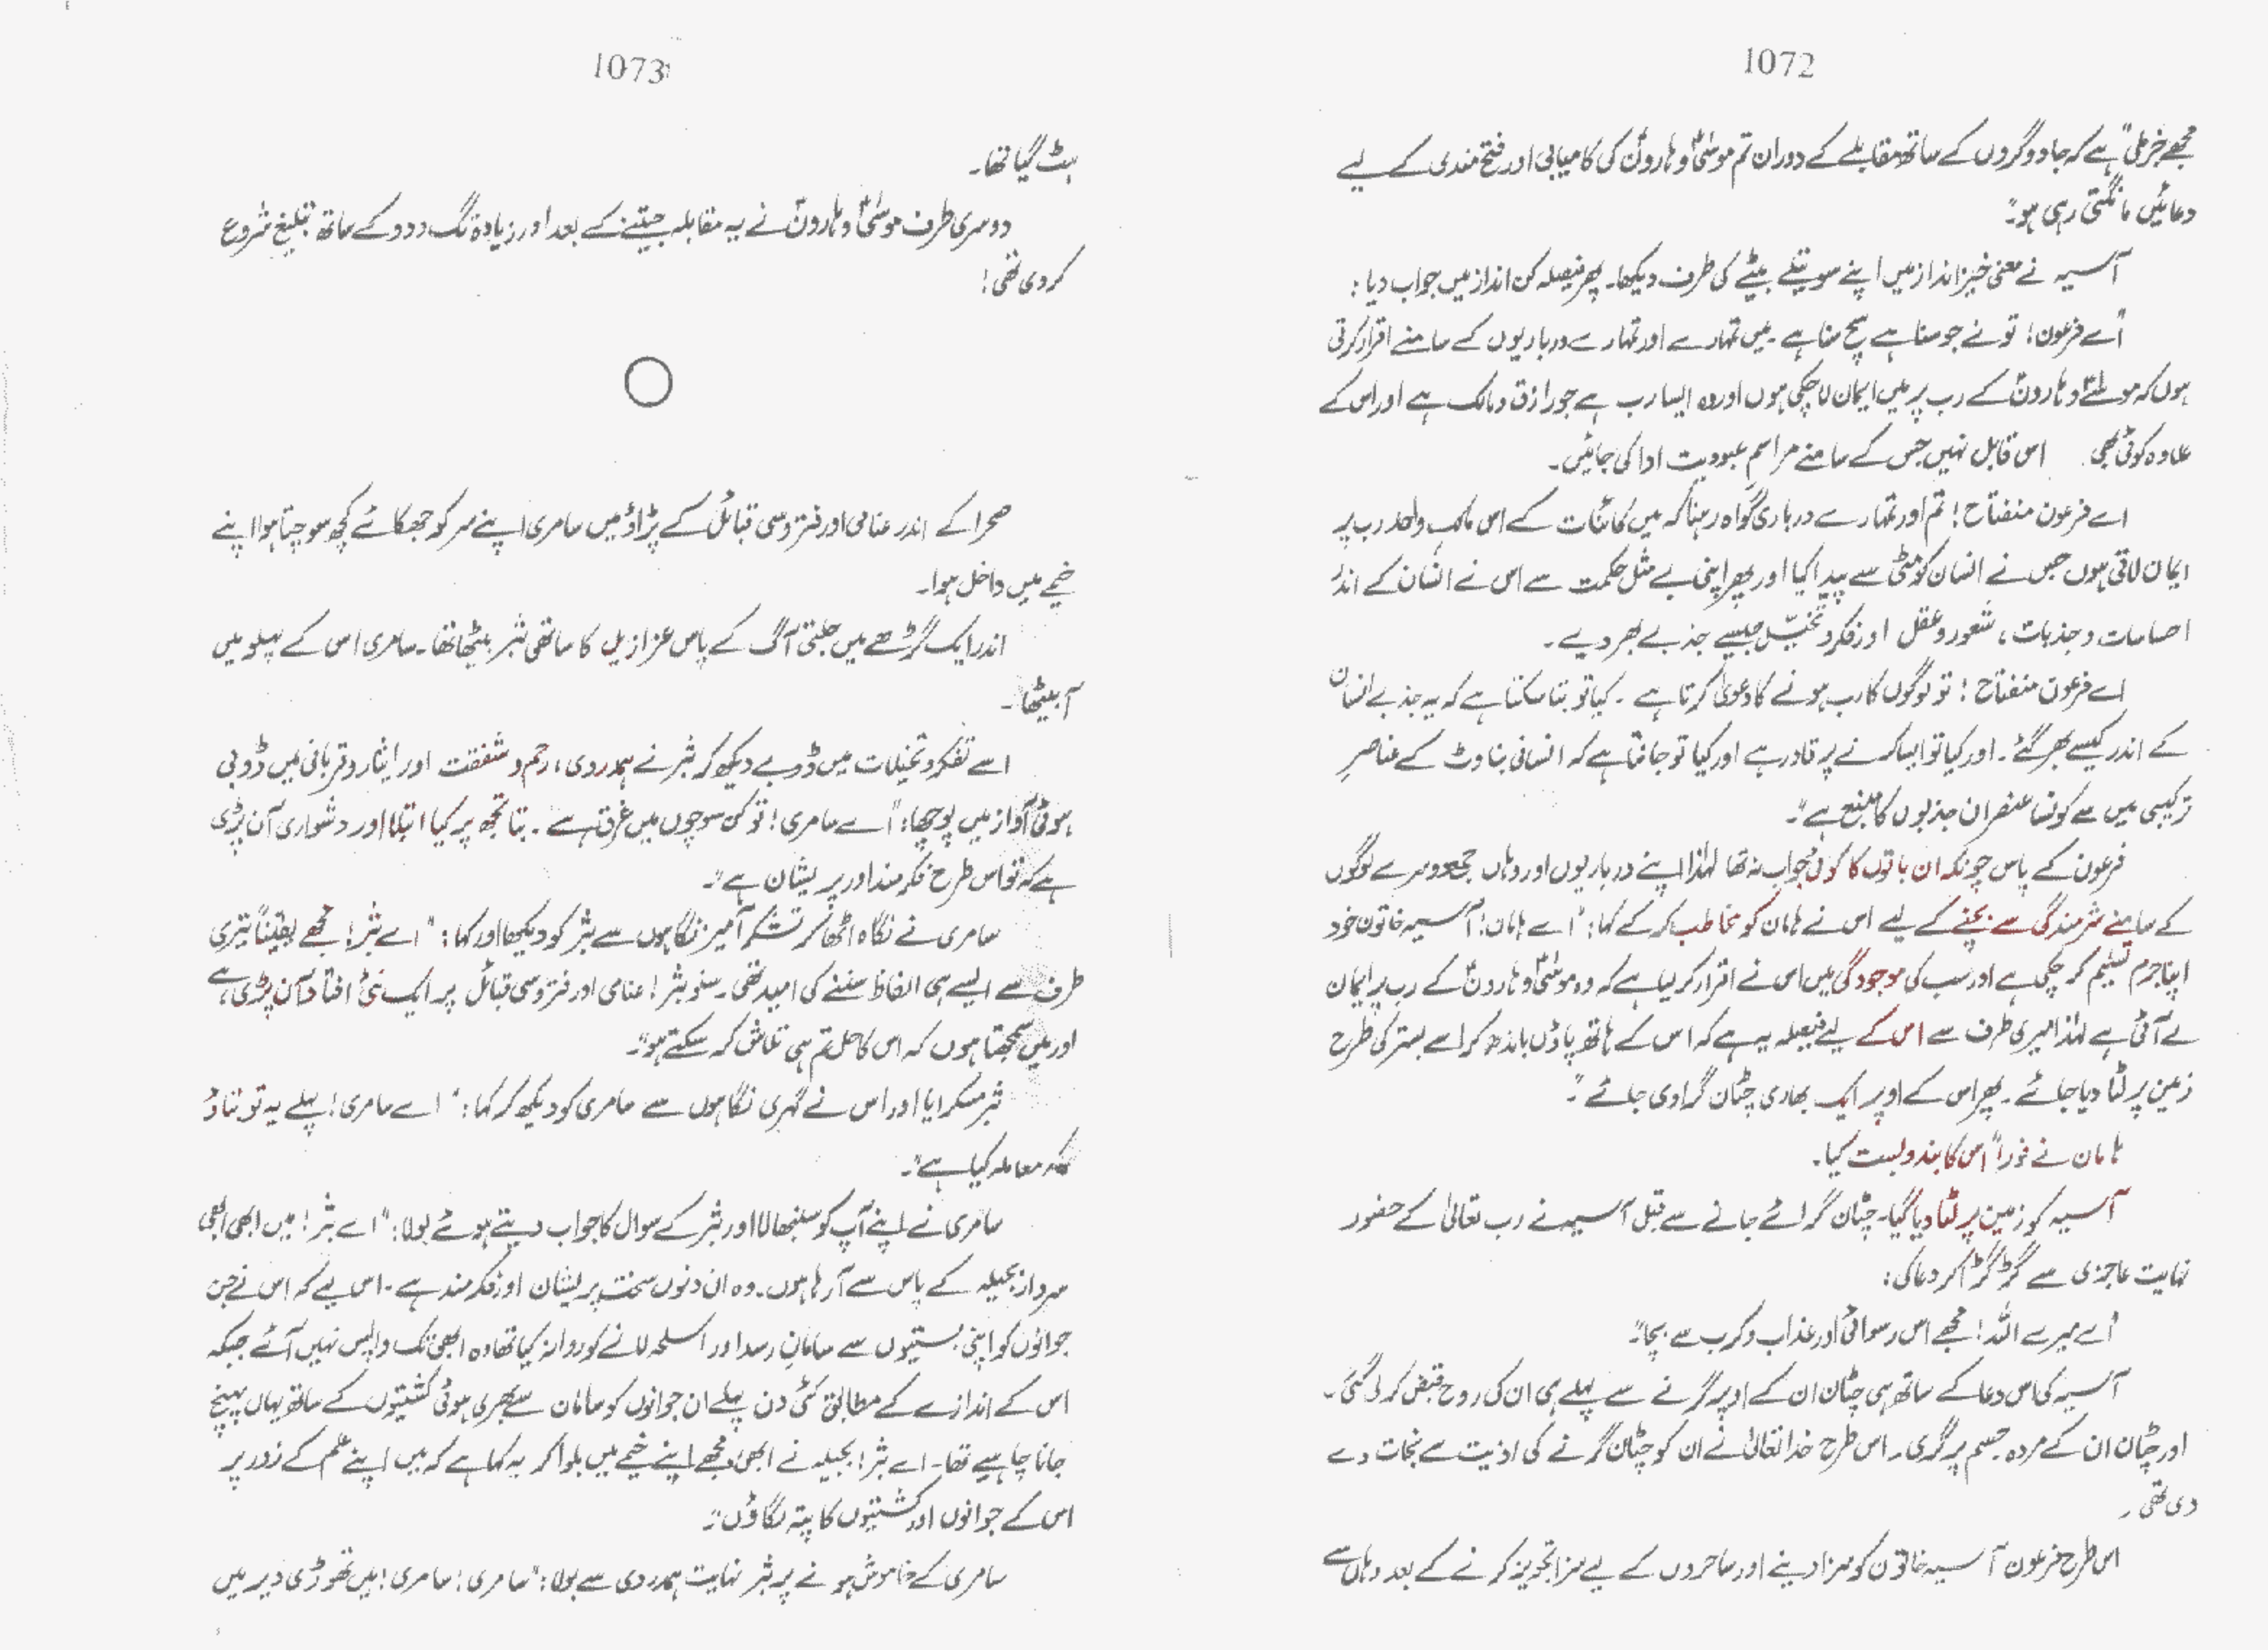 1072
مجھے خبر ملی ہے کہ جادوگروں کے ساتھ مقابلے کے دوران تم موسیٰؑ و ہارونؑ کی کامیابی اور فتح مندی کے لیے
دعائیں مانگتی رہی ہو۔"
آسیہ نے معنی خیز انداز میں اپنے سوتیلے بیٹے کی طرف دیکھا۔ پھر فیصلہ کن انداز میں جواب دیا :
"اے فرعون! تو نے جو سنا ہے سچ سنا ہے۔ میں تمہارے اور تمہارے درباریوں کے سامنے اقرار کرتی
ہوں کہ موسیٰؑ و ہارونؑ کے رب پر میں ایمان لا چکی ہوں اور وہ ایسا رب ہے جو رازق و مالک ہے اور اس کے
علاوہ کوئی بھی اس قابل نہیں جس کے سامنے مراسمِ عبودیت ادا کی جائیں۔
اے فرعون منفتاح! تم اور تمہارے درباری گواہ رہنا کہ میں کائنات کے اس مالک و واحد رب پر
ایمان لاتی ہوں جس نے انسان کو مٹی سے پیدا کیا اور پھر اپنی بے مثل حکمت سے اس نے انسان کے اندر
احساسات و جذبات، شعور و عقل اور فکر و تخیّل جیسے جذبے بھر دیے۔
اے فرعون منفتاح! تو لوگوں کا رب ہونے کا دعویٰ کرتا ہے۔ کیا تو بتا سکتا ہے کہ یہ جذبے انسان
کے اندر کیسے بھر گئے۔ اور کیا تو ایسا کرنے پر قادر ہے اور کیا تو جانتا ہے کہ انسانی بناوٹ کے عناصرِ
ترکیبی میں سے کونسا عنصر ان جذبوں کا منبع ہے"۔
فرعون کے پاس چونکہ ان باتوں کا کوئی جواب نہ تھا لہٰذا اپنے درباریوں اور وہاں جمع دوسرے لوگوں
کے سامنے شرمندگی سے بچنے کے لیے اس نے ہامان کو مخاطب کر کے کہا: "اے ہامان! آسیہ خاتون خود
اپنا جرم تسلیم کر چکی ہے اور سب کی موجودگی میں اس نے اقرار کر لیا ہے کہ وہ موسیٰؑ و ہارونؑ کے رب پر ایمان
لے آئی ہے لہٰذا میری طرف سے اس کے لیے فیصلہ یہ ہے کہ اس کے ہاتھ پاؤں باندھ کر اسے بستر کی طرح
زمین پر لٹا دیا جائے۔ پھر اس کے اوپر ایک بھاری چٹان گرا دی جائے"۔
ہامان نے فوراً اس کا بندوبست کیا۔
آسیہ کو زمین پر لٹا دیا گیا۔ چٹان گرائے جانے سے قبل آسیہ نے رب تعالیٰ کے حضور
نہایت عاجزی سے گڑگڑا کر دعا کی:
"اے میرے اللہ! مجھے اس رسوائی اور عذاب و کرب سے بچا"۔
آسیہ کی اس دعا کے ساتھ ہی چٹان ان کے اوپر گرنے سے پہلے ہی ان کی روح قبض کر لی گئی۔
اور چٹان ان کے مردہ جسم پر گری۔ اس طرح خدا تعالیٰ نے ان کو چٹان گرنے کی اذیت سے نجات دے
دی تھی۔
اس طرح فرعون آسیہ خاتون کو سزا دینے اور ساحروں کے لیے سزا تجویز کرنے کے بعد وہاں سے
1073
ہٹ گیا تھا۔
دوسری طرف موسیٰؑ و ہارونؑ نے یہ مقابلہ جیتنے کے بعد اور زیادہ تگ و دو کے ساتھ تبلیغ شروع
کر دی تھی!
صحرا کے اندر عنامی اور فتروسی قبائل کے پڑاؤ میں سامری اپنے سر کو جھکائے کچھ سوچتا ہوا اپنے
خیمے میں داخل ہوا۔
اندر ایک گڑھے میں جلتی آگ کے پاس عزازیل کا ساتھی ثبر بیٹھا تھا۔ سامری اس کے پہلو میں
آ بیٹھا۔
اسے تفکر و تخیلات میں ڈوبے دیکھ کر ثبر نے ہمدردی، رحم و شفقت اور ایثار و قربانی میں ڈوبی
ہوئی آواز میں پوچھا: "اے سامری! تو کن سوچوں میں غرق ہے۔ بتا تجھ پر کیا ابتلا اور دشواری آن پڑی
ہے کہ تو اس طرح فکرمند اور پریشان ہے"۔
سامری نے نگاہ اٹھا کر تشکر آمیز نگاہوں سے ثبر کو دیکھا اور کہا: "اے ثبر! مجھے یقیناً تیری
طرف سے ایسے ہی الفاظ سننے کی امید تھی۔ سنو ثبر! عنامی اور فتروسی قبائل پر ایک نئی افتاد آن پڑی ہے
اور میں سمجھتا ہوں کہ اس کا حل تم ہی تلاش کر سکتے ہو"۔
ثبر مسکرایا اور اس نے گہری نگاہوں سے سامری کو دیکھ کر کہا: "اے سامری! پہلے یہ تو بتاؤ
کہ معاملہ کیا ہے"۔
سامری نے اپنے آپ کو سنبھالا اور ثبر کے سوال کا جواب دیتے ہوئے بولا: "اے ثبر! میں ابھی ابھی
سردار بجیلہ کے پاس سے آ رہا ہوں۔ وہ ان دنوں سخت پریشان اور فکرمند ہے۔ اس لیے کہ اس نے جن
جوانوں کو اپنی بستیوں سے سامانِ رسد اور اسلحہ لانے کو روانہ کیا تھا وہ ابھی تک واپس نہیں آئے جبکہ
اس کے اندازے کے مطابق کئی دن پہلے ان جوانوں کو سامان سے بھری ہوئی کشتیوں کے ساتھ یہاں پہنچ
جانا چاہیے تھا۔ اے ثبر! بجیلہ نے ابھی مجھے اپنے خیمے میں بلوا کر یہ کہا ہے کہ میں اپنے علم کے زور پر
اس کے جوانوں اور کشتیوں کا پتہ لگاؤں"۔
سامری کے خاموش ہونے پر ثبر نہایت ہمدردی سے بولا: "سامری! سامری! میں تھوڑی دیر میں